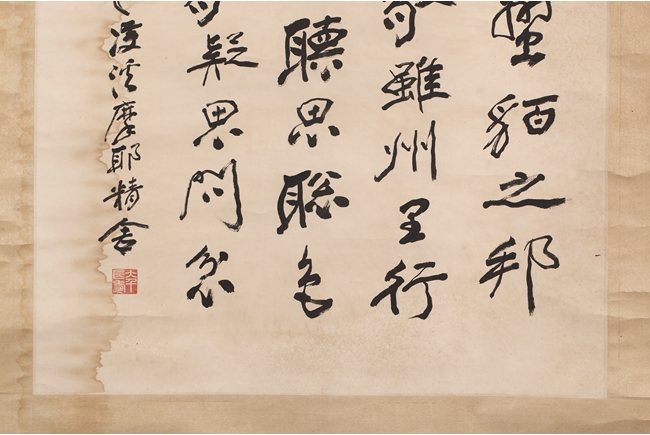 蠻貊之邦
雖州里行
聽思聰色
疑思問忿
溪摩耶精舍